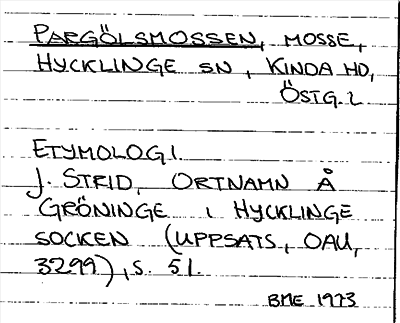 PARGÖLSMOSSEN, MOSSE,
HYCKLINGE SN, KINDA HD,
ÖSTG. L
ETYMOLOGI
J. STRID, ORTNAMN Å
GRÖNINGE I HYCKLINGE
SOCKEN (UPPSATS, OAU,
3299), S. 51.
BME 1973